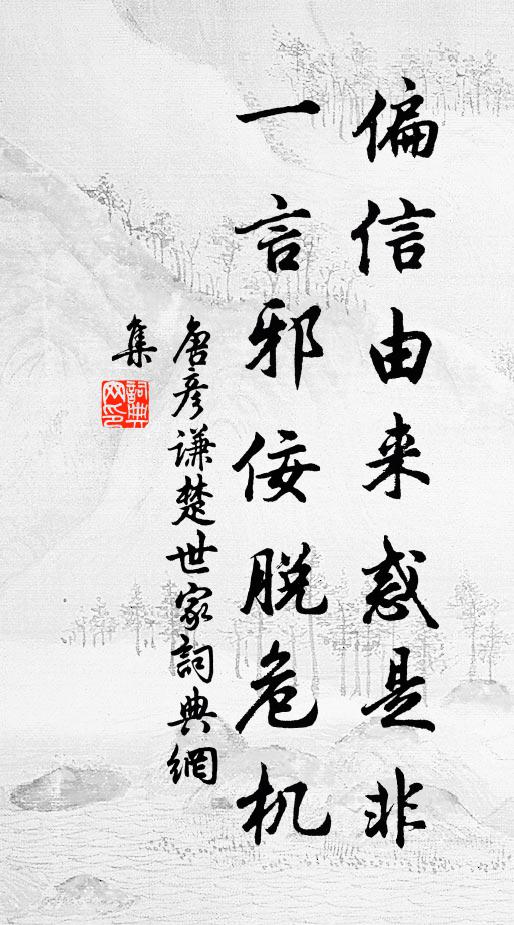 偏信由来惑是非
一言邪佞脱危机
唐彦谦楚世家詞典網
集
詞典